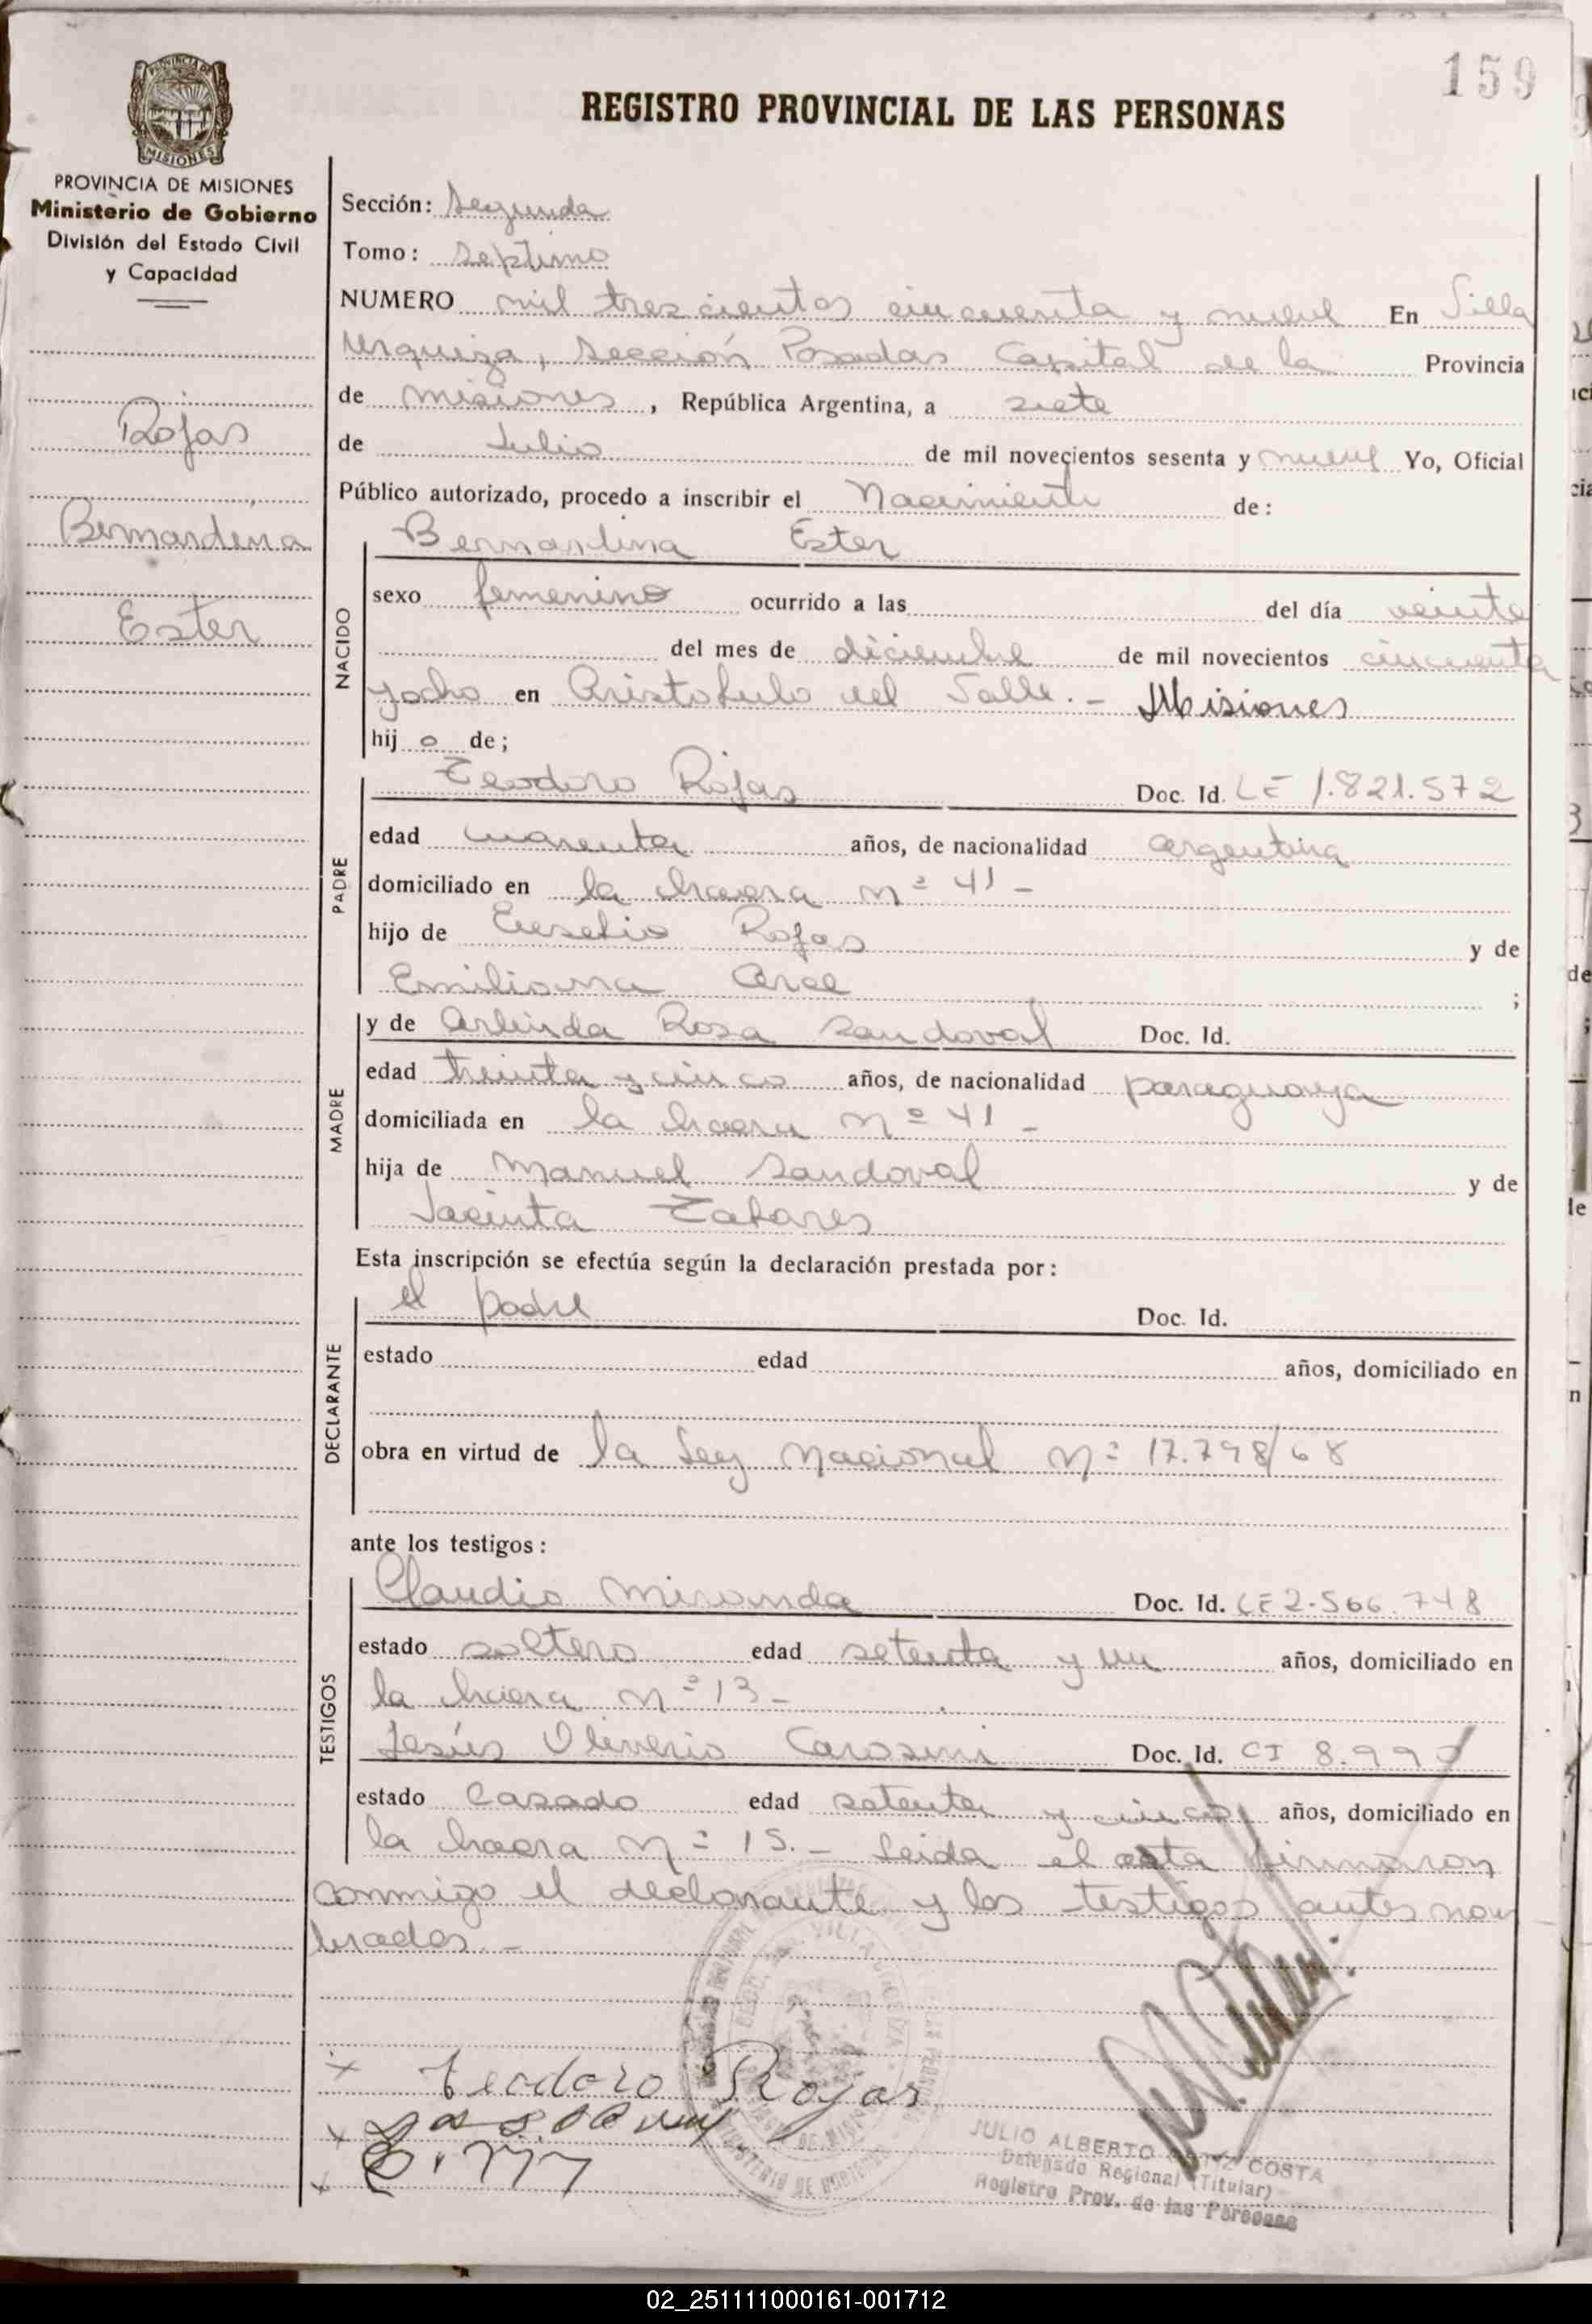 159
REGISTRO PROVINCIAL DE LAS PERSONAS
PROVINCIA DE MISIONES
PROVINCIA DE MISIONES
Ministerio de Gobierno
División del Estado Civil
y Capacidad
Rojas
Bernardina
Ester
Sección: Segunda
Tomo: Septimo
NUMERO mil trescientos cincuenta y nueve En Villa
Urquiza, Sección Posadas Capital de la Provincia
de Misiones, República Argentina, a siete
de Julio de mil novecientos sesenta y nueve Yo, Oficial
Público autorizado, procedo a inscribir el Nacimiento de:
NACIDO
Bernardina Ester
sexo femenino ocurrido a las del día veinte
del mes de diciembre de mil novecientos cincuenta
yocho en Aristobulo del Valle. - Misiones
hij o de;
PADRE
Teodoro Rojas Doc. Id. LE 1.821.572
edad cuarenta años, de nacionalidad argentina
domiciliado en la chacra nº 41 -
hijo de Eusebio Rojas y de
Emiliana Arce ;
MADRE
y de Arlinda Rosa Sandoval Doc. Id.
edad treinta y cinco años, de nacionalidad paraguaya
domiciliada en la chacra nº 41 -
hija de Manuel Sandoval y de
Jacinta Tabares
Esta inscripción se efectúa según la declaración prestada por:
DECLARANTE
el padre Doc. Id.
estado edad años, domiciliado en
obra en virtud de la Ley Nacional nº 17.798/68
ante los testigos:
TESTIGOS
Claudio Miranda Doc. Id. LE 2.566.748
estado soltero edad setenta y un años, domiciliado en
la chacra nº 13 -
Jesús Oliverio Carosini Doc. Id. CI 8.990
estado Casado edad setenta y cinco años, domiciliado en
la chacra nº 15. - Leida el acta firmaron
conmigo el declarante y los testigos antes nom
brados. -
x Teodoro Rojas
x
x
JULIO ALBERTO COSTA
Delegado Regional (Titular)
Registro Prov. de las Personas
02_251111000161-001712